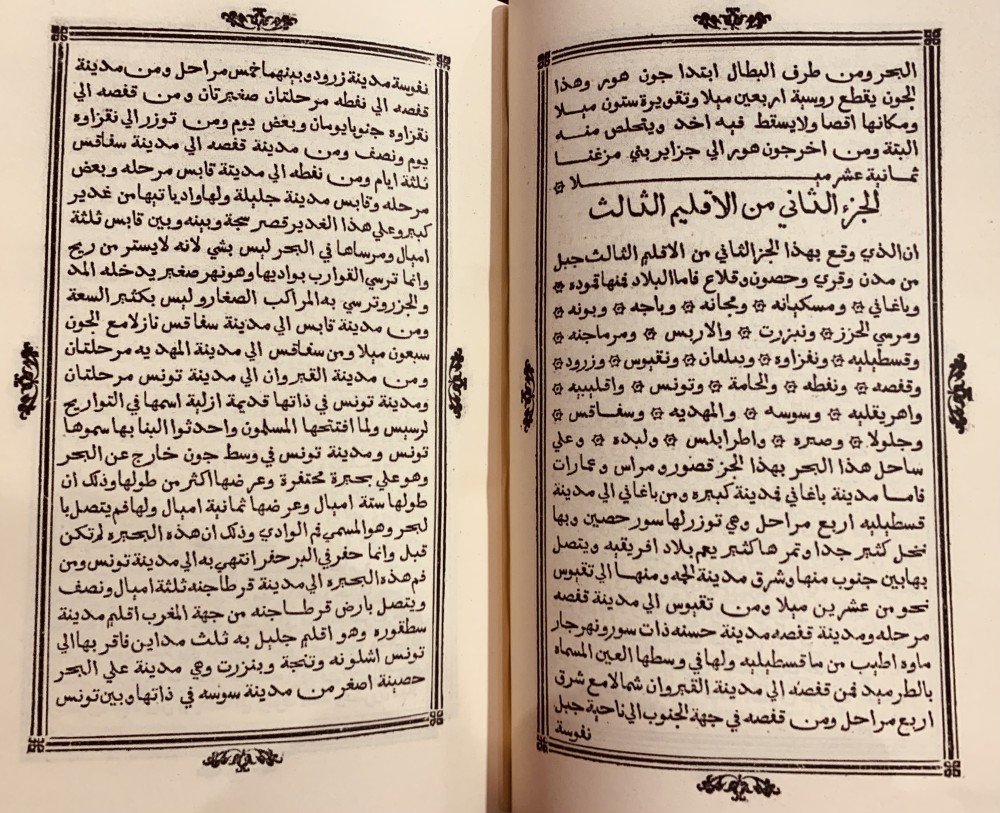 البحر ومن طرف البطال ابتدا جون هور وهذا
الجون يقطع روسية اربعين ميلا وتقويرة ستون ميلا
ومكانها اقصا ولا يسقط فيه احد ويتخلص منه
البتة ومن اخر جون هور الي جزاير بني مزغنا
ثمانية عشر ميـــلا ۞
الجزء الثاني من الاقليم الثالث
ان الذي وقع بهذا الجز الثاني من الاقليم الثالث جبل
من مدن وقري وحصون وقلاع فاما البلاد فمنها قمودة ۞
وباغاني ۞ ومسكيانه ۞ ومجانه ۞ وباجه ۞ وبونه ۞
ومرسي الخرز ۞ ونبزرت ۞ والاربس ۞ ومرماجنه ۞
وقسطيليه ۞ ونفزاوه ۞ وبيلقان ۞ ونقيوس ۞ وزرود ۞
وقفصه ۞ ونفطه ۞ والحامة ۞ وتونس ۞ واقليبيه ۞
واهريقليه ۞ وسوسه ۞ والمهديه ۞ وسفاقس ۞
وجلولا ۞ وصبره ۞ واطرابلس ۞ ولبده ۞ وعلي
ساحل هذا البحر بهذا الجز قصور ومراس وعمارات
فاما مدينة باغاني فمدينة كبيره ومن باغاني الي مدينة
قسطيليه اربع مراحل وهي توزر لها سور حصين وبها
نخل كثير جدا وتمرها كثير يعم بلاد افريقيه ويتصل
بها بين جنوب منها وشرق مدينة الحمه ومنها الي تقيوس
نحو من عشرين ميلا ومن تقيوس الي مدينة قفصه
مرحله ومدينة قفصه مدينة حسنه ذات سور ونهر جار
ماوه اطيب من ما قسطيليه ولها في وسطها العين المسماه
بالطرميد فمن قفصه الي مدينة القيروان شمالا مع شرق
اربع مراحل ومن قفصه في جهة الجنوب الي ناحية جبل
نفوسة
نفوسة مدينة زرود وبينهما خمس مراحل ومن مدينة
قفصه الي نفطه مرحلتان صغيرتان ومن قفصه الي
نقزاوه جنوبا يومان وبعض يوم ومن توزر الي نقزاوه
يوم ونصف ومن مدينة قفصه الي مدينة سفاقس
ثلثة ايام ومن نفطه الي مدينة قابس مرحله وبعض
مرحله وقابس مدينة جليلة ولها واد ياتيها من غدير
كبير وعلي هذا الغدير قصر سجة وبينه وبين قابس ثلثة
اميال ومرساها في البحر ليس بشي لانه لا يستر من ريح
وانما ترسي القوارب بواديها وهو نهر صغير يدخله المد
والجزر وترسي به المراكب الصغار وليس بكثير السعة
ومن مدينة قابس الي مدينة سفاقس نازلا مع الجون
سبعون ميلا ومن سفاقس الي مدينة المهديه مرحلتان
ومن مدينة القيروان الي مدينة تونس مرحلتان
ومدينة تونس في ذاتها قديمة ازلية اسمها في التواريخ
لرسيس ولما افتتحها المسلمون واحدثوا البنا بها سموها
تونس ومدينة تونس في وسط جون خارج عن البحر
وهو علي بحيرة محتفرة وعرضها اكثر من طولها وذلك ان
طولها ستة اميال وعرضها ثمانية اميال ولها فم يتصل با
لبحر وهو المسمي فم الوادي وذلك ان هذه البحيره لم تكن
قبل وانما حفر في البر حفر انتهي به الي مدينة تونس ومن
فم هذه البحيره الي مدينة قرطاجنه ثلثة اميال ونصف
ويتصل بارض قرطاجنه من جهة المغرب اقليم مدينة
سطقوره وهو اقليم جليل به ثلث مداين فاقربها الي
تونس اشلونه وتنجة وبنزرت وهي مدينة علي البحر
حصينة اصغر من مدينة سوسه في ذاتها وبين تونس